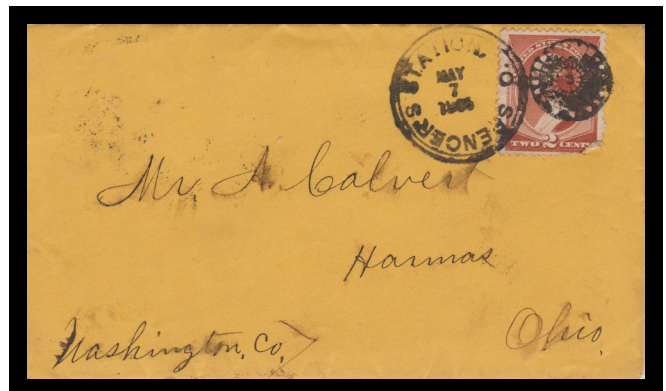 SPENCERS STATION, O.
MAY
7
TWO 2 CENTS
Mr. A. Calvert
Harmas
Ohio
Washington, Co,